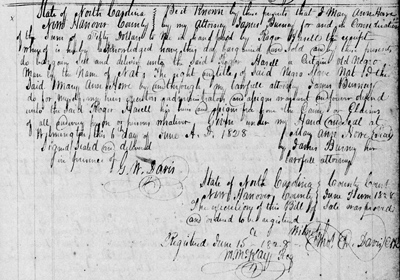 State of North Carolina } Be it Known by this presents that I Mary Ann Howe
New Hanover County } by my Attorney James Burney for and in Consideration
of the Sum of Fifty Dollars to me in hand paid by Roger Howell the receipt
whereof is hereby acknowledged have this day bargained and Sold and by these presents
do bargain Sell and deliver unto the Said Roger Howell a Certain old Negro
Man by the Name of Nat: The right and title of Said Negro Slave Nat I the
Said Mary Ann Howe by and through my lawfull attorney James Burney
do for my self my heirs executors and administrators and assigns warrant and forever defend
unto the Said Roger Howell his heirs and assigns forever from the Claim or Claims
of all persons whatever Given under my Hand and Seal at
Wilmington this 6th day of June A.D. 1828
Signed Sealed and delivered Mary Ann Howe (Seal)
in presence of by James Burney her
G. W. Davis lawfull attorney
State of North Carolina } County Court
New Hanover County } June Term 1828
The execution of this Bill of Sale was proved
and ordered to be registered
Witness Thos. F. Davis Clk
Registered June 15 1828